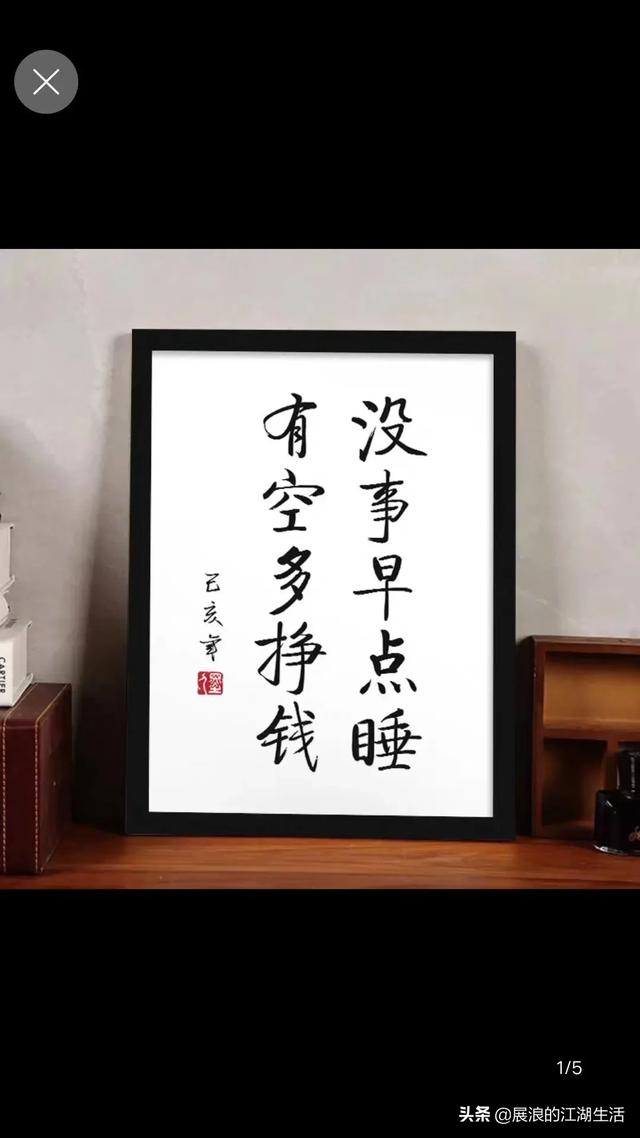 没事早点睡
有空多挣钱
己亥年
CARTIER
1/5
头条 @展浪的江湖生活